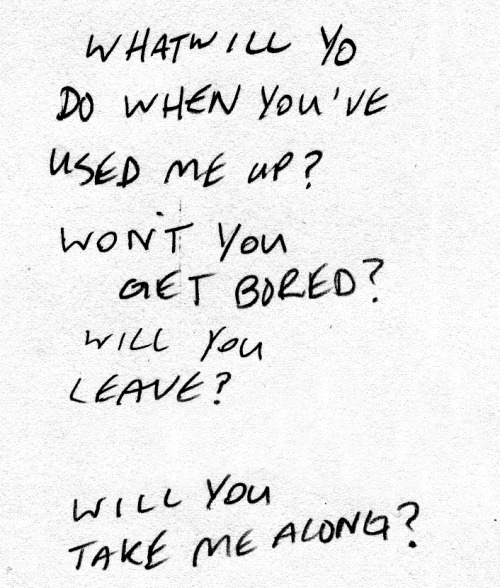 WHATWILL YO
DO WHEN YOU'VE
USED ME UP?
WON'T YOU
GET BORED?
WILL YOU
LEAVE?
WILL YOU
TAKE ME ALONG?